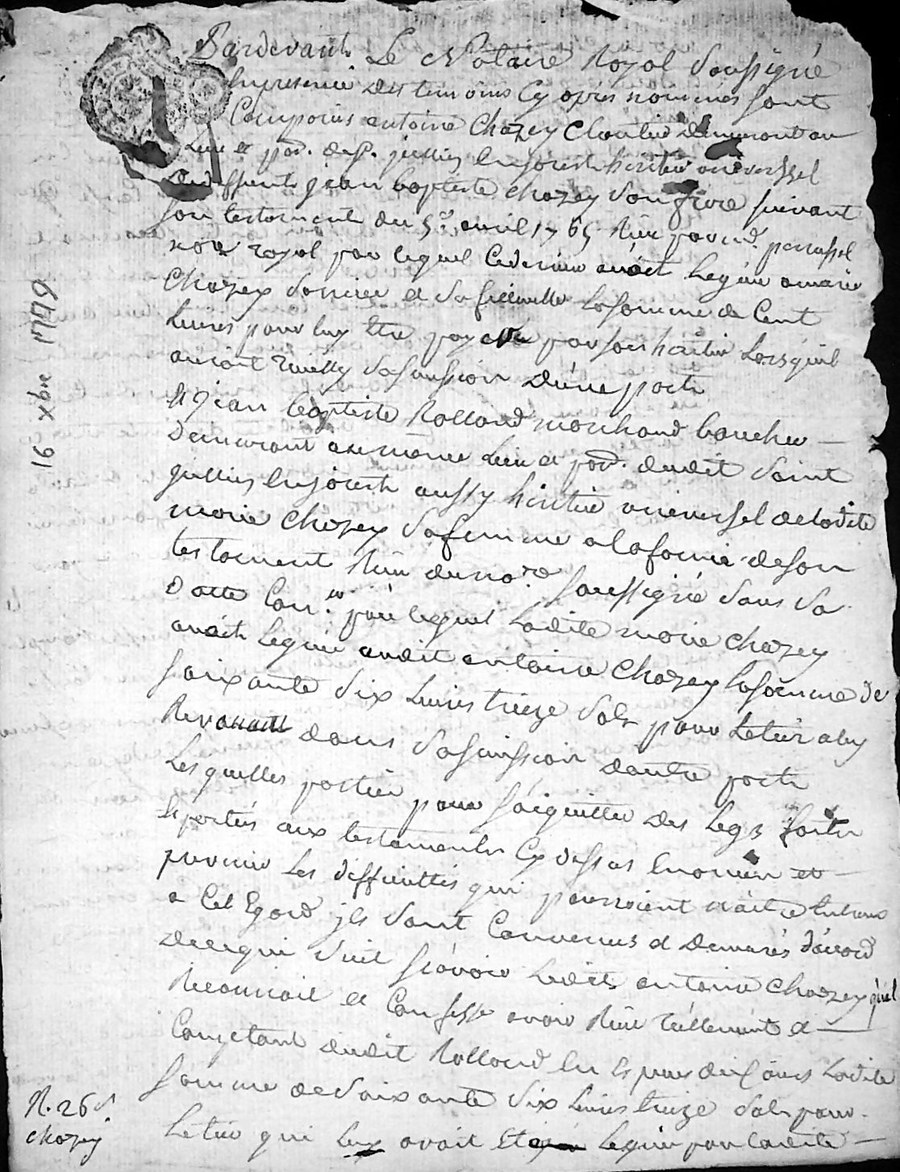 Pardevant Le Notaire Royal Soussigné
En presence des temoins Cy apres nommés sont
Comparus antoine Chazey Cloutier demeurant au
Lieu et par. de St. jullien En jarest heritier universel
de deffunt jean baptiste Chazey son frere suivant
son testament du 5e. avril 1765 Reçu par
nore. royal par lequel Ce dernier avoit Legué a marie
Chazey sa niece et sa filleulle La somme de Cent
Livres pour luy Etre payée par son heritier Lorsqu'il
auroit Recuilly sa sucssion d'une part
Et jean baptiste Rolland marchand boucher
Demeurant au meme Lieu et par. dudit Saint
jullien En jarest aussy heritier universel de ladite
marie Chazey sa femme a la forme de son
testament Reçu du nore. soussigné sous sa
datte Con.lle par lequel Ladite marie Chazey
avoit Legué audit antoine Chazey la somme de
soixante Six Livres treize Sols pour
dans sa sucssion d'autre part
Lesquelles parties pour s'acquitter des Legs
portés aux testaments Cy dessus Enoncés et
prevenir Les difficultés qui pourroient naitre Entreux
a Cet Egard ils sont Convenus et Demeurés d'accord
de ce qui suit scavoir Ledit antoine Chazey qu'il
Reconnoit et Confesse avoir Reçu réellement et
Comptant dudit Rolland En Especes de Cours Ladite
somme de Soixante Six Livres treize Sols pour
qui luy avoit Eté Legué par Ladite
16 xbre 1779
R. 26
chazey